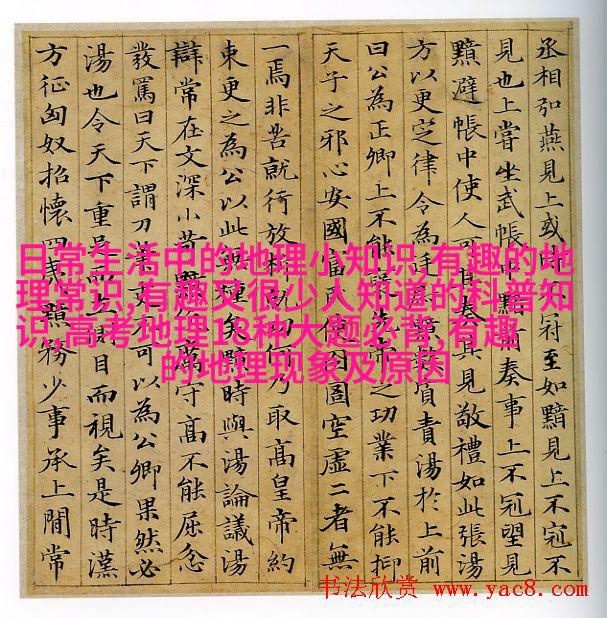 丞相弘燕見上或時冠至如黯見上不冠不
見也上嘗坐武帳中黯前奏事上不冠望見
黯避帳中使人可其奏其見敬禮如此張湯
方以更定律令為廷責湯於上前
曰公為正卿上不能先帝之功業下不能抑
天子之邪心安國富民使囹圄空虛二者無
一焉非苦就行放析就功何乃取高皇帝約
束更之為公以此種矣黯時與湯論議湯
辯常在文深小苛厲守高不能屈忿
發罵曰天下謂刀不可以為公卿果然必
湯也令天下重足立側目而視矣是時漢
方征匈奴招懷四夷黯務少事承上間常
日常生活中的地理小知识,有趣的地
理常识,有趣又很少人知道的科普知
识,高考地理18种大题必背,有趣
的地理现象及原因
书法欣赏 www.yac8.com